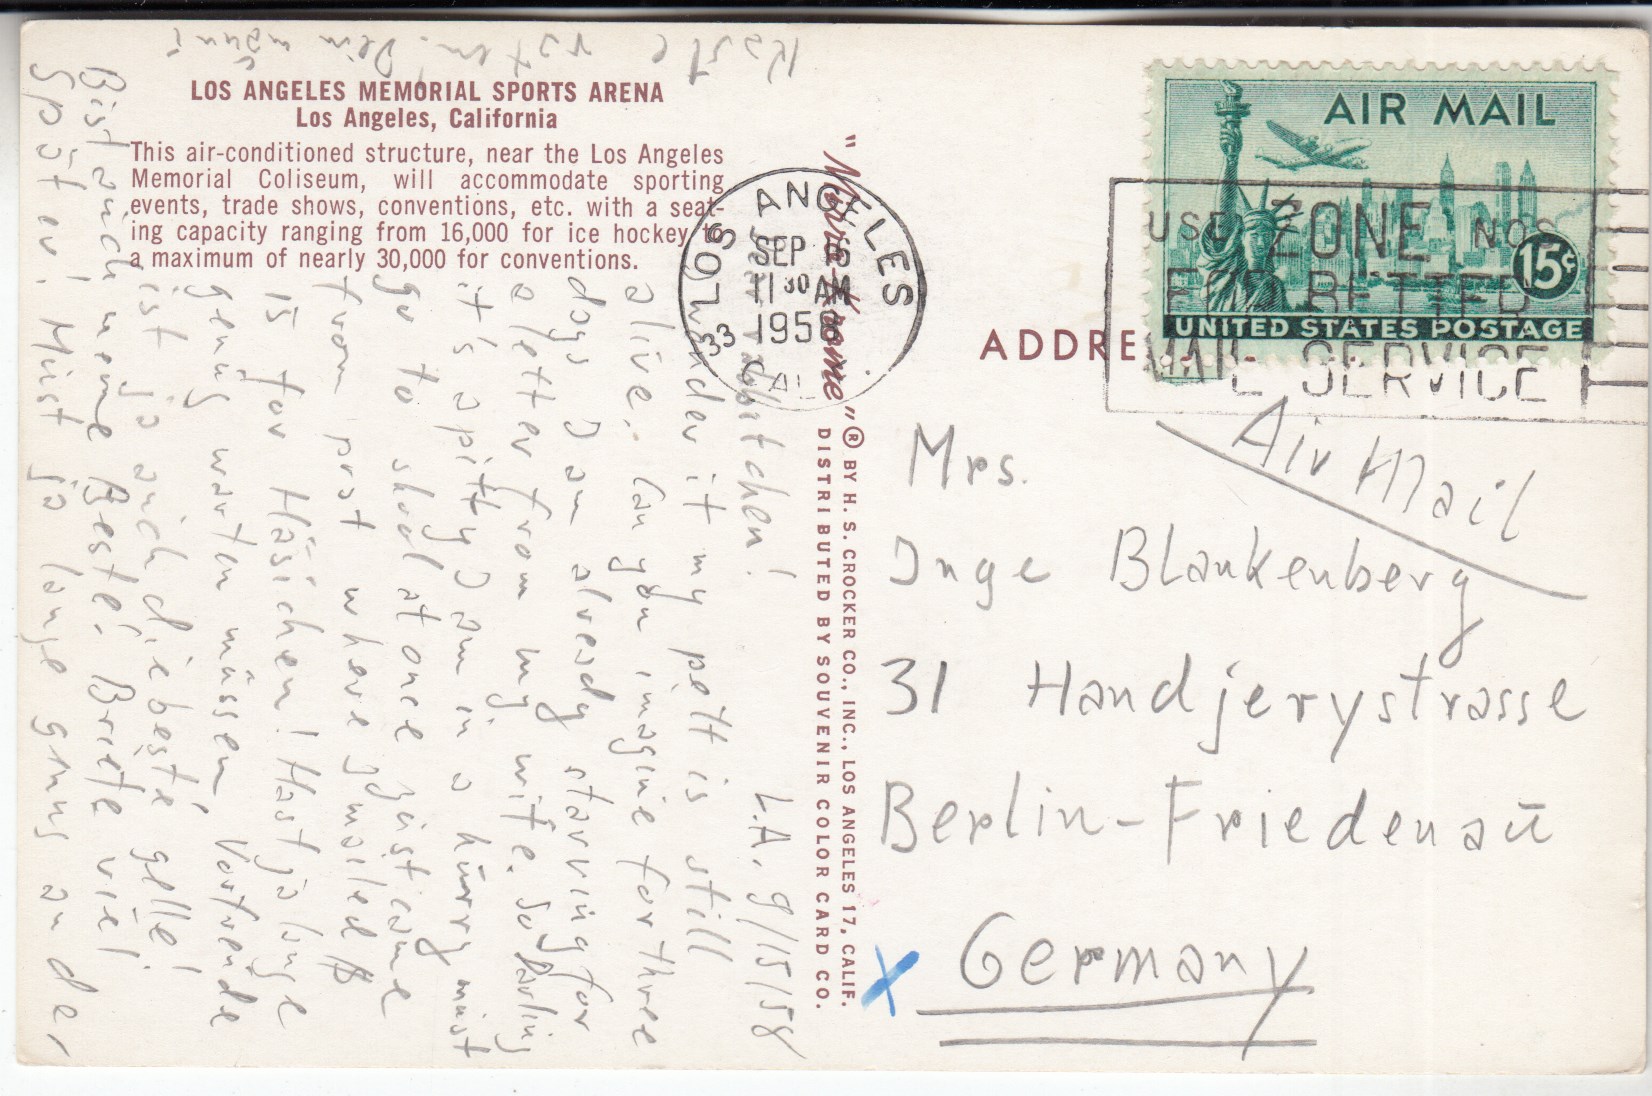 LOS ANGELES MEMORIAL SPORTS ARENA
Los Angeles, California
This air-conditioned structure, near the Los Angeles
Memorial Coliseum, will accommodate sporting
events, trade shows, conventions, etc. with a seat-
ing capacity ranging from 16,000 for ice hockey to
a maximum of nearly 30,000 for conventions.
L.A. 9/15/58
wonder it my pelt is still
alive. Can you imagine for three
days I am already starving for
a letter from my wife. So Darling
it's a pity I am in a hurry must
go to shool at once just came
from post where I mailed
15 for Häsichen! Hast ja lange
genug warten müssen. Vorfreude
ist ja auch die beste gelle!
Bist auch meine Beste! Briefe viel
Später! Musst ja lange genug an der
Kaste Dein
"Mirro-Krome" ® BY H. S. CROCKER CO., INC., LOS ANGELES 17, CALIF.
DISTRIBUTED BY SOUVENIR COLOR CARD CO.
LOS ANGELES
SEP
11 30 AM
1958
CAL
33
AIR MAIL
15¢
UNITED STATES POSTAGE
USE ZONE NOS
FOR BETTER
MAIL SERVICE
ADDRE
Air Mail
Mrs.
Inge Blankenberg
31 Handjerystrasse
Berlin-Friedenau
Germany